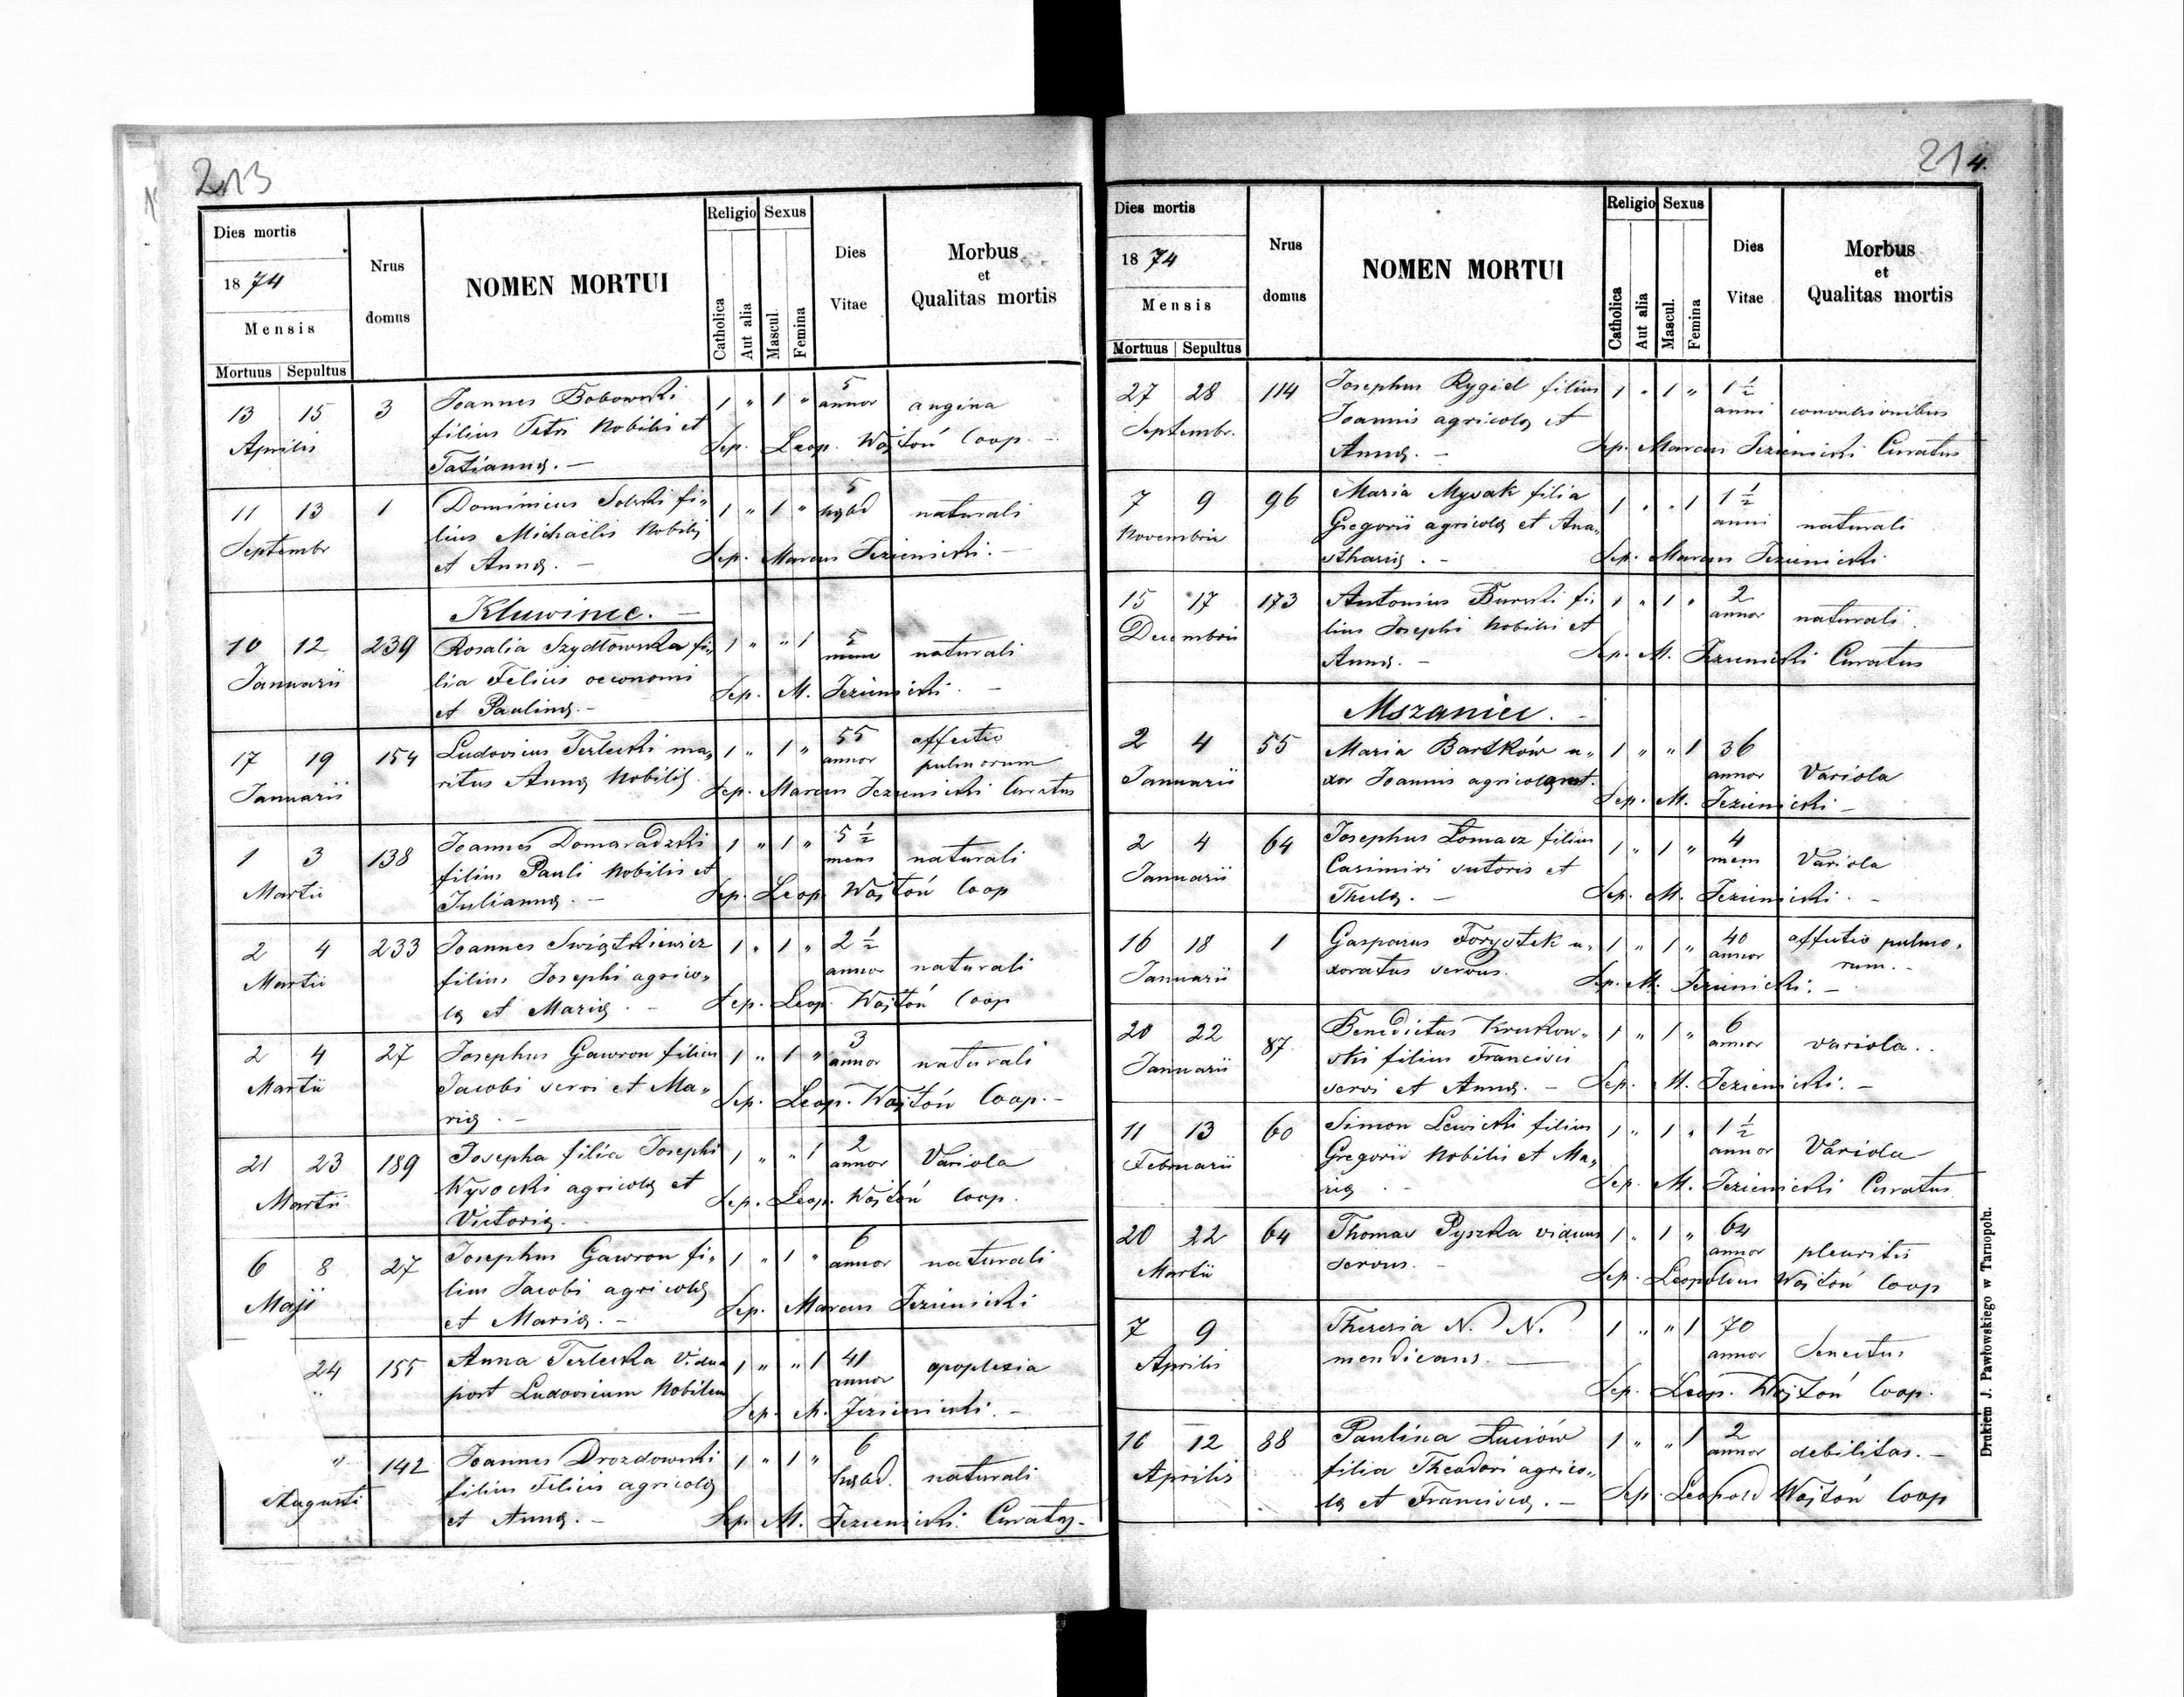 213
Dies mortis
1874
Mensis
Mortuus Sepultus
Nrus domus
NOMEN MORTUI
Religio Sexus
Catholica
Aut alia
Mascul.
Femina
Dies Vitae
Morbus et Qualitas mortis
13 15 3 Joannes Bobowski 1 " 1 " 5 annor angina
Aprilis filius Petri Nobilis et
Sep. Leop. Wojtoń Coop. -
Tatiannę. -
11 13 1 Dominicus Solski fi„ 1 " 1 " 5 hebd naturali
Septembr lius Michaëlis Nobilis
et Annę. - Sep. Marcus Jezienicki. -
Kluwince. -
10 12 239 Rosalia Szydłowska fi„ 1 " " 1 5 mens naturali
Januarii lia Felicis oeconomi
et Paulinę. - Sep. M. Jezienicki. -
17 19 154 Ludovicus Terlecki ma„ 1 " 1 " 55 annor affectio pulmorum
Januarii ritus Annę Nobilis. Sep. Marcus Jezienicki Curatus
1 3 138 Joannes Domaradzki 1 " 1 " 5 1/2 mens naturali
Martii filius Pauli Nobilis et
Juliannę. - Sep. Leop. Wojtoń Coop
2 4 233 Joannes Swiątkiewicz 1 " 1 " 2 1/2 annor naturali
Martii filius Josephi agrico„
lę et Marię. - Sep. Leop. Wojtoń Coop
2 4 27 Josephus Gawron filius 1 " 1 " 3 annor naturali
Martii Jacobi servi et Ma„
rię. - Sep. Leop. Wojtoń Coop. -
21 23 189 Josepha filia Josephi 1 " " 1 2 annor Variola
Martii Wysocki agricolę et
Victorię. Sep. Leop. Wojtoń Coop.
6 8 27 Josephus Gawron fi„ 1 " 1 " 6 annor naturali
Maji lius Jacobi agricolę
et Marię. - Sep. Marcus Jezienicki
24 155 Anna Terlecka Vidua 1 " " 1 41 annor apoplexia
" post Ludovicum Nobilem
Sep. M. Jezienicki. -
" 142 Joannes Drozdowski 1 " 1 " 6 hebd. naturali
Augusti filius Felicis agricolę
et Annę. - Sep. M. Jezienicki Curatus -
214.
Dies mortis
1874
Mensis
Mortuus Sepultus
Nrus domus
NOMEN MORTUI
Religio Sexus
Catholica
Aut alia
Mascul.
Femina
Dies Vitae
Morbus et Qualitas mortis
27 28 114 Josephus Rygiel filius 1 " 1 " 1 1/2 anni convulsionibus
Septembr. Joannis agricolę et
Annę. - Sep. Marcus Jezienicki Curatus
7 9 96 Maria Mysak filia 1 " " 1 1 1/2 anni naturali
Novembris Gregorii agricolę et Ana„
sthasię. - Sep. Marcus Jezienicki
15 17 173 Antonius Burski fi„ 1 " 1 " 2 annor naturali.
Decembris lius Josephi Nobilis et
Annę. - Sep. M. Jezienicki Curatus
Mszaniec. -
2 4 55 Maria Bartków u„ 1 " " 1 36 annor Variola
Januarii xor Joannis agricolę
Sep. M. Jezienicki -
2 4 64 Josephus Łomacz filius 1 " 1 " 4 mens Variola
Januarii Casimiri sutoris et
Theclę. - Sep. M. Jezienicki. -
16 18 1 Gasparus Forystek u„ 1 " 1 " 40 annor affectio pulmo„
Januarii xoratus servus. rum. -
Sep. M. Jezienicki. -
20 22 87. Benedictus Krukow„ 1 " 1 " 6 annor variola..
Januarii ski filius Francisci
servi et Annę. - Sep. M. Jezienicki. -
11 13 60 Simon Lewicki filius 1 " 1 " 1 1/2 annor Variola
Februarii Gregorii Nobilis et Ma„
rię. - Sep. M. Jezienicki Curatus
20 22 64 Thomas Pyszka viduus 1 " 1 " 64 annor pleuritis
Martii servus. - Sep. Leopoldus Wojtoń Coop
7 9 Theresia N. N. 1 " " 1 70 annor Senectus
Aprilis mendicans. -
Sep. Leop. Wojtoń Coop.
10 12 88 Paulina Łuciów 1 " " 1 2 annor debilitas. -
Aprilis filia Theodori agrico„
lę et Franciscę. - Sep. Leopold Wojtoń Coop
Drukiem J. Pawłowskiego w Tarnopolu.